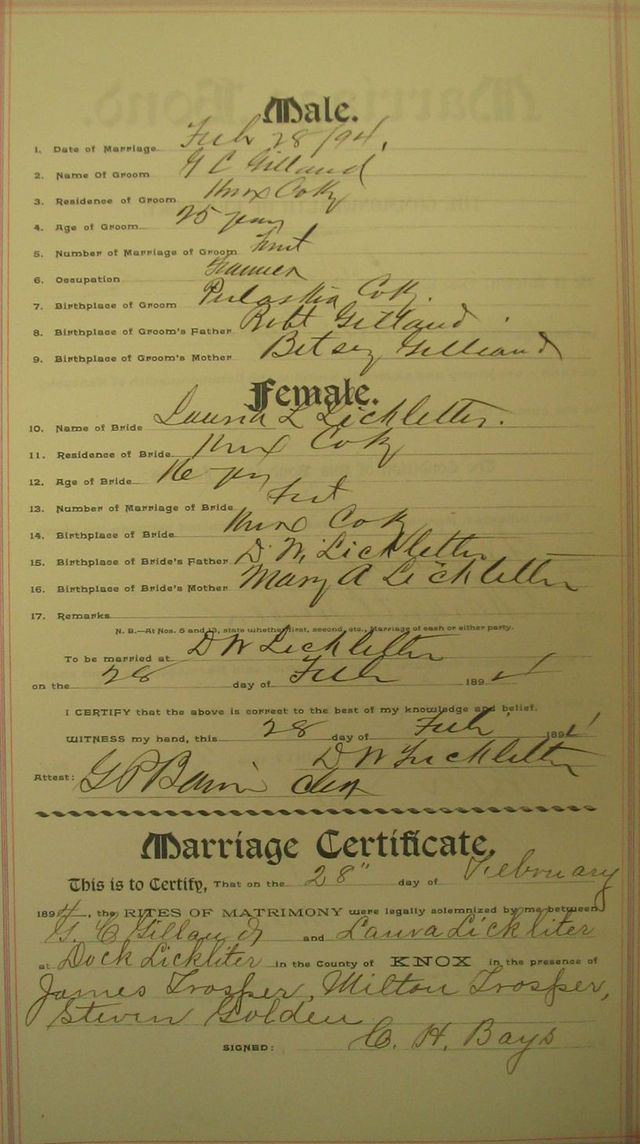 Male.
1. Date of Marriage Feb 28/94
2. Name Of Groom G C Gilland
3. Residence of Groom Knox Co Ky
4. Age of Groom 25 years
5. Number of Marriage of Groom First
6. Occupation Farmer
7. Birthplace of Groom Pulaskia Co Ky.
8. Birthplace of Groom's Father Robt Gilland
9. Birthplace of Groom's Mother Betsey Gilliand
Female.
10. Name of Bride Laura L Lickletter.
11. Residence of Bride Knox Co Ky
12. Age of Bride 16 yrs
13. Number of Marriage of Bride First
14. Birthplace of Bride Knox Co Ky
15. Birthplace of Bride's Father D. W. Lickletter
16. Birthplace of Bride's Mother Mary A Lickletter
17. Remarks
N. B.—At Nos. 5 and 13, state whether first, second, etc., Marriage of each or either party.
To be married at D W Lickletter
on the 28 day of Feb 1894
I CERTIFY that the above is correct to the best of my knowledge and belief.
WITNESS my hand, this 28 day of Feb 1894
D W Lickletter
Attest: G P Clk
Marriage Certificate.
This is to Certify, That on the 28" day of February
1894, the RITES OF MATRIMONY were legally solemnized by me between
G. C. Gilland and Laura Lickliter
at Dock Lickliter in the County of KNOX in the presence of
James Trosper, Milton Trosper,
Steven Golden
SIGNED: C. H. Bays